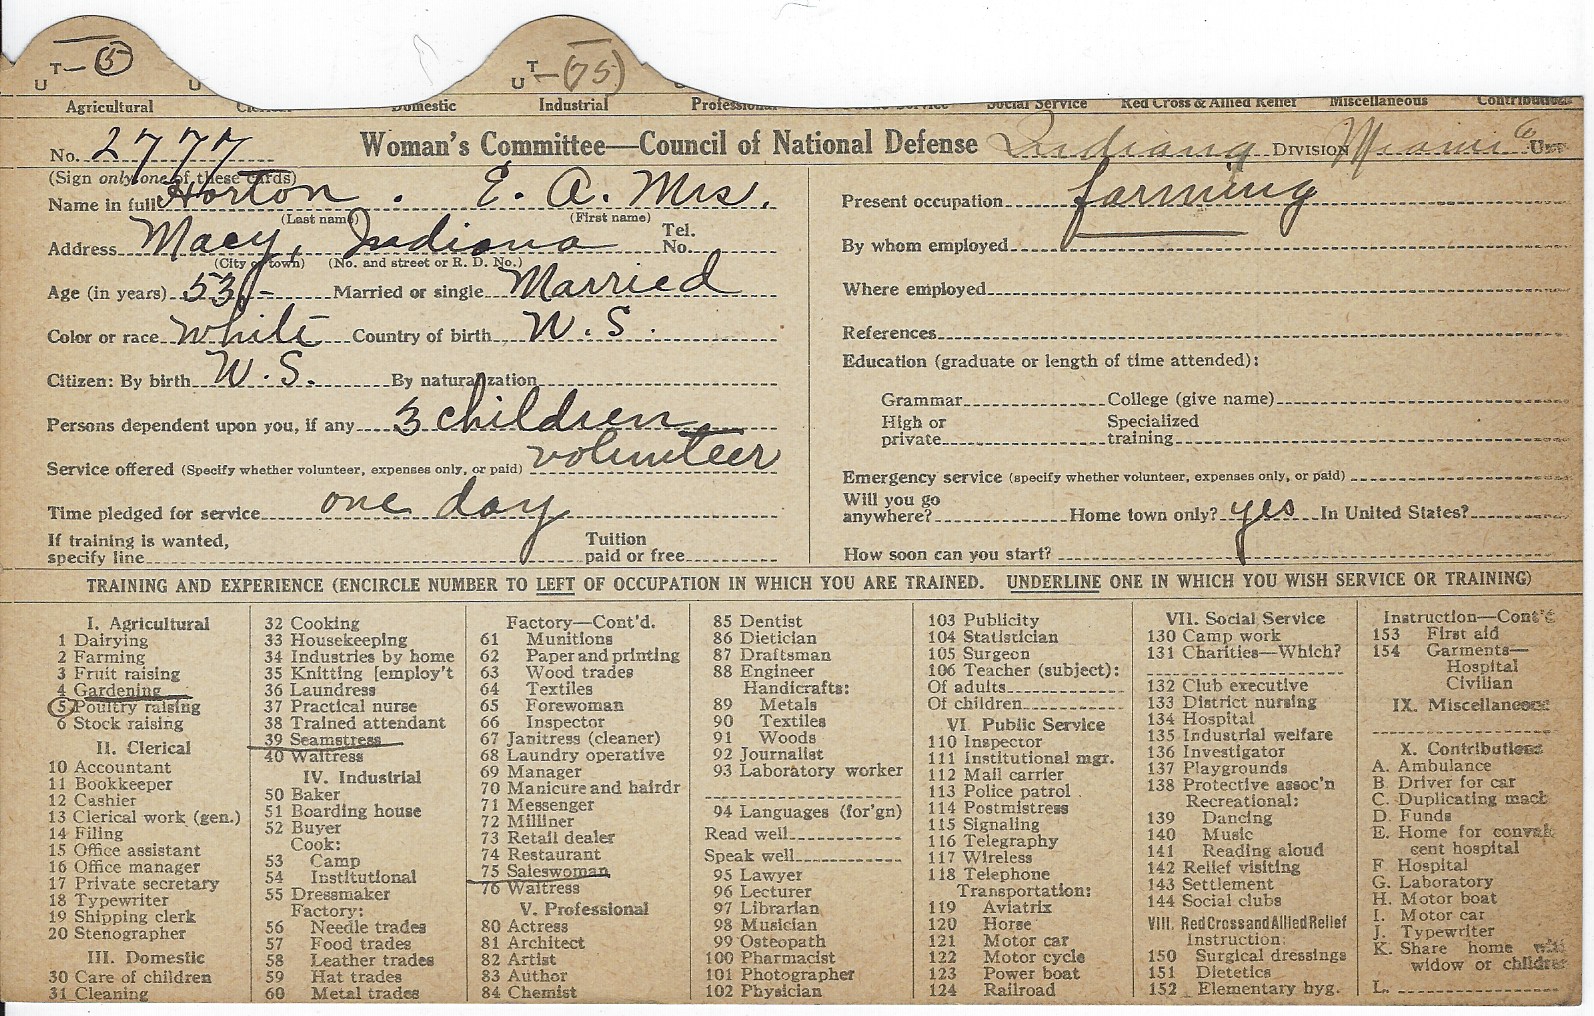 U T—(5) U U T—(75)
Agricultural Domestic Industrial Professional Social Service Red Cross & Allied Relief Miscellaneous Contributions
No. 2777 Woman's Committee—Council of National Defense Indiana DIVISION Miami 6
(Sign only one of these cards)
Name in full Horton . E. A. Mrs.
(Last name) (First name)
Address Macy, Indiana Tel. No.
(City or town) (No. and street or R. D. No.)
Age (in years) 53 - Married or single Married
Color or race White Country of birth U. S.
Citizen: By birth U. S. By naturalization
Persons dependent upon you, if any 3 children
Service offered (Specify whether volunteer, expenses only, or paid) volunteer
Time pledged for service one day
If training is wanted, specify line Tuition paid or free
Present occupation farming
By whom employed
Where employed
References
Education (graduate or length of time attended):
Grammar College (give name)
High or private Specialized training
Emergency service (specify whether volunteer, expenses only, or paid)
Will you go anywhere? Home town only? yes In United States?
How soon can you start?
TRAINING AND EXPERIENCE (ENCIRCLE NUMBER TO LEFT OF OCCUPATION IN WHICH YOU ARE TRAINED. UNDERLINE ONE IN WHICH YOU WISH SERVICE OR TRAINING)
I. Agricultural
1 Dairying
2 Farming
3 Fruit raising
4 Gardening
5 Poultry raising
6 Stock raising
II. Clerical
10 Accountant
11 Bookkeeper
12 Cashier
13 Clerical work (gen.)
14 Filing
15 Office assistant
16 Office manager
17 Private secretary
18 Typewriter
19 Shipping clerk
20 Stenographer
III. Domestic
30 Care of children
31 Cleaning
32 Cooking
33 Housekeeping
34 Industries by home
35 Knitting [employ't
36 Laundress
37 Practical nurse
38 Trained attendant
39 Seamstress
40 Waitress
IV. Industrial
50 Baker
51 Boarding house
52 Buyer
Cook:
53 Camp
54 Institutional
55 Dressmaker
Factory:
56 Needle trades
57 Food trades
58 Leather trades
59 Hat trades
60 Metal trades
Factory—Cont'd.
61 Munitions
62 Paper and printing
63 Wood trades
64 Textiles
65 Forewoman
66 Inspector
67 Janitress (cleaner)
68 Laundry operative
69 Manager
70 Manicure and hairdr
71 Messenger
72 Milliner
73 Retail dealer
74 Restaurant
75 Saleswoman
76 Waitress
V. Professional
80 Actress
81 Architect
82 Artist
83 Author
84 Chemist
85 Dentist
86 Dietician
87 Draftsman
88 Engineer
Handicrafts:
89 Metals
90 Textiles
91 Woods
92 Journalist
93 Laboratory worker
94 Languages (for'gn)
Read well
Speak well
95 Lawyer
96 Lecturer
97 Librarian
98 Musician
99 Osteopath
100 Pharmacist
101 Photographer
102 Physician
103 Publicity
104 Statistician
105 Surgeon
106 Teacher (subject):
Of adults
Of children
VI. Public Service
110 Inspector
111 Institutional mgr.
112 Mail carrier
113 Police patrol
114 Postmistress
115 Signaling
116 Telegraphy
117 Wireless
118 Telephone
Transportation:
119 Aviatrix
120 Horse
121 Motor car
122 Motor cycle
123 Power boat
124 Railroad
VII. Social Service
130 Camp work
131 Charities—Which?
132 Club executive
133 District nursing
134 Hospital
135 Industrial welfare
136 Investigator
137 Playgrounds
138 Protective assoc'n
Recreational:
139 Dancing
140 Music
141 Reading aloud
142 Relief visiting
143 Settlement
144 Social clubs
VIII. Red Cross and Allied Relief
Instruction:
150 Surgical dressings
151 Dietetics
152 Elementary hyg.
Instruction—Cont'd
153 First aid
154 Garments—
Hospital
Civilian
IX. Miscellaneous
X. Contributions
A. Ambulance
B. Driver for car
C. Duplicating mach
D. Funds
E. Home for convales
cent hospital
F Hospital
G. Laboratory
H. Motor boat
I. Motor car
J. Typewriter
K. Share home with
widow or children
L.